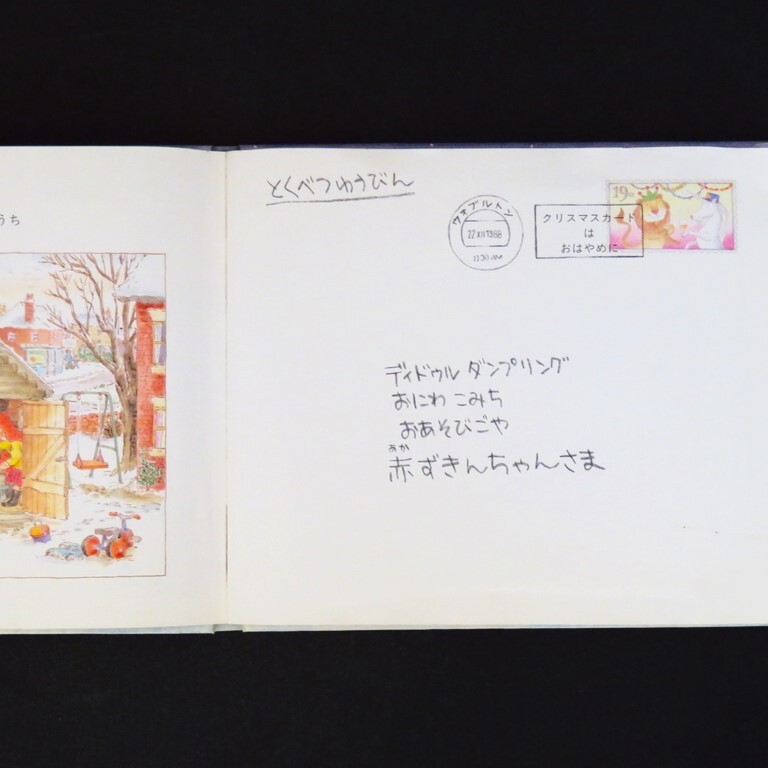 うち
とくべつゆうびん
ウォブルトン
22 XII 1988
11:30 AM
クリスマスカード
は
おはやめに
19
ディドゥル ダンプリング
おにわ こみち
おあそびごや
あか
赤ずきんちゃんさま